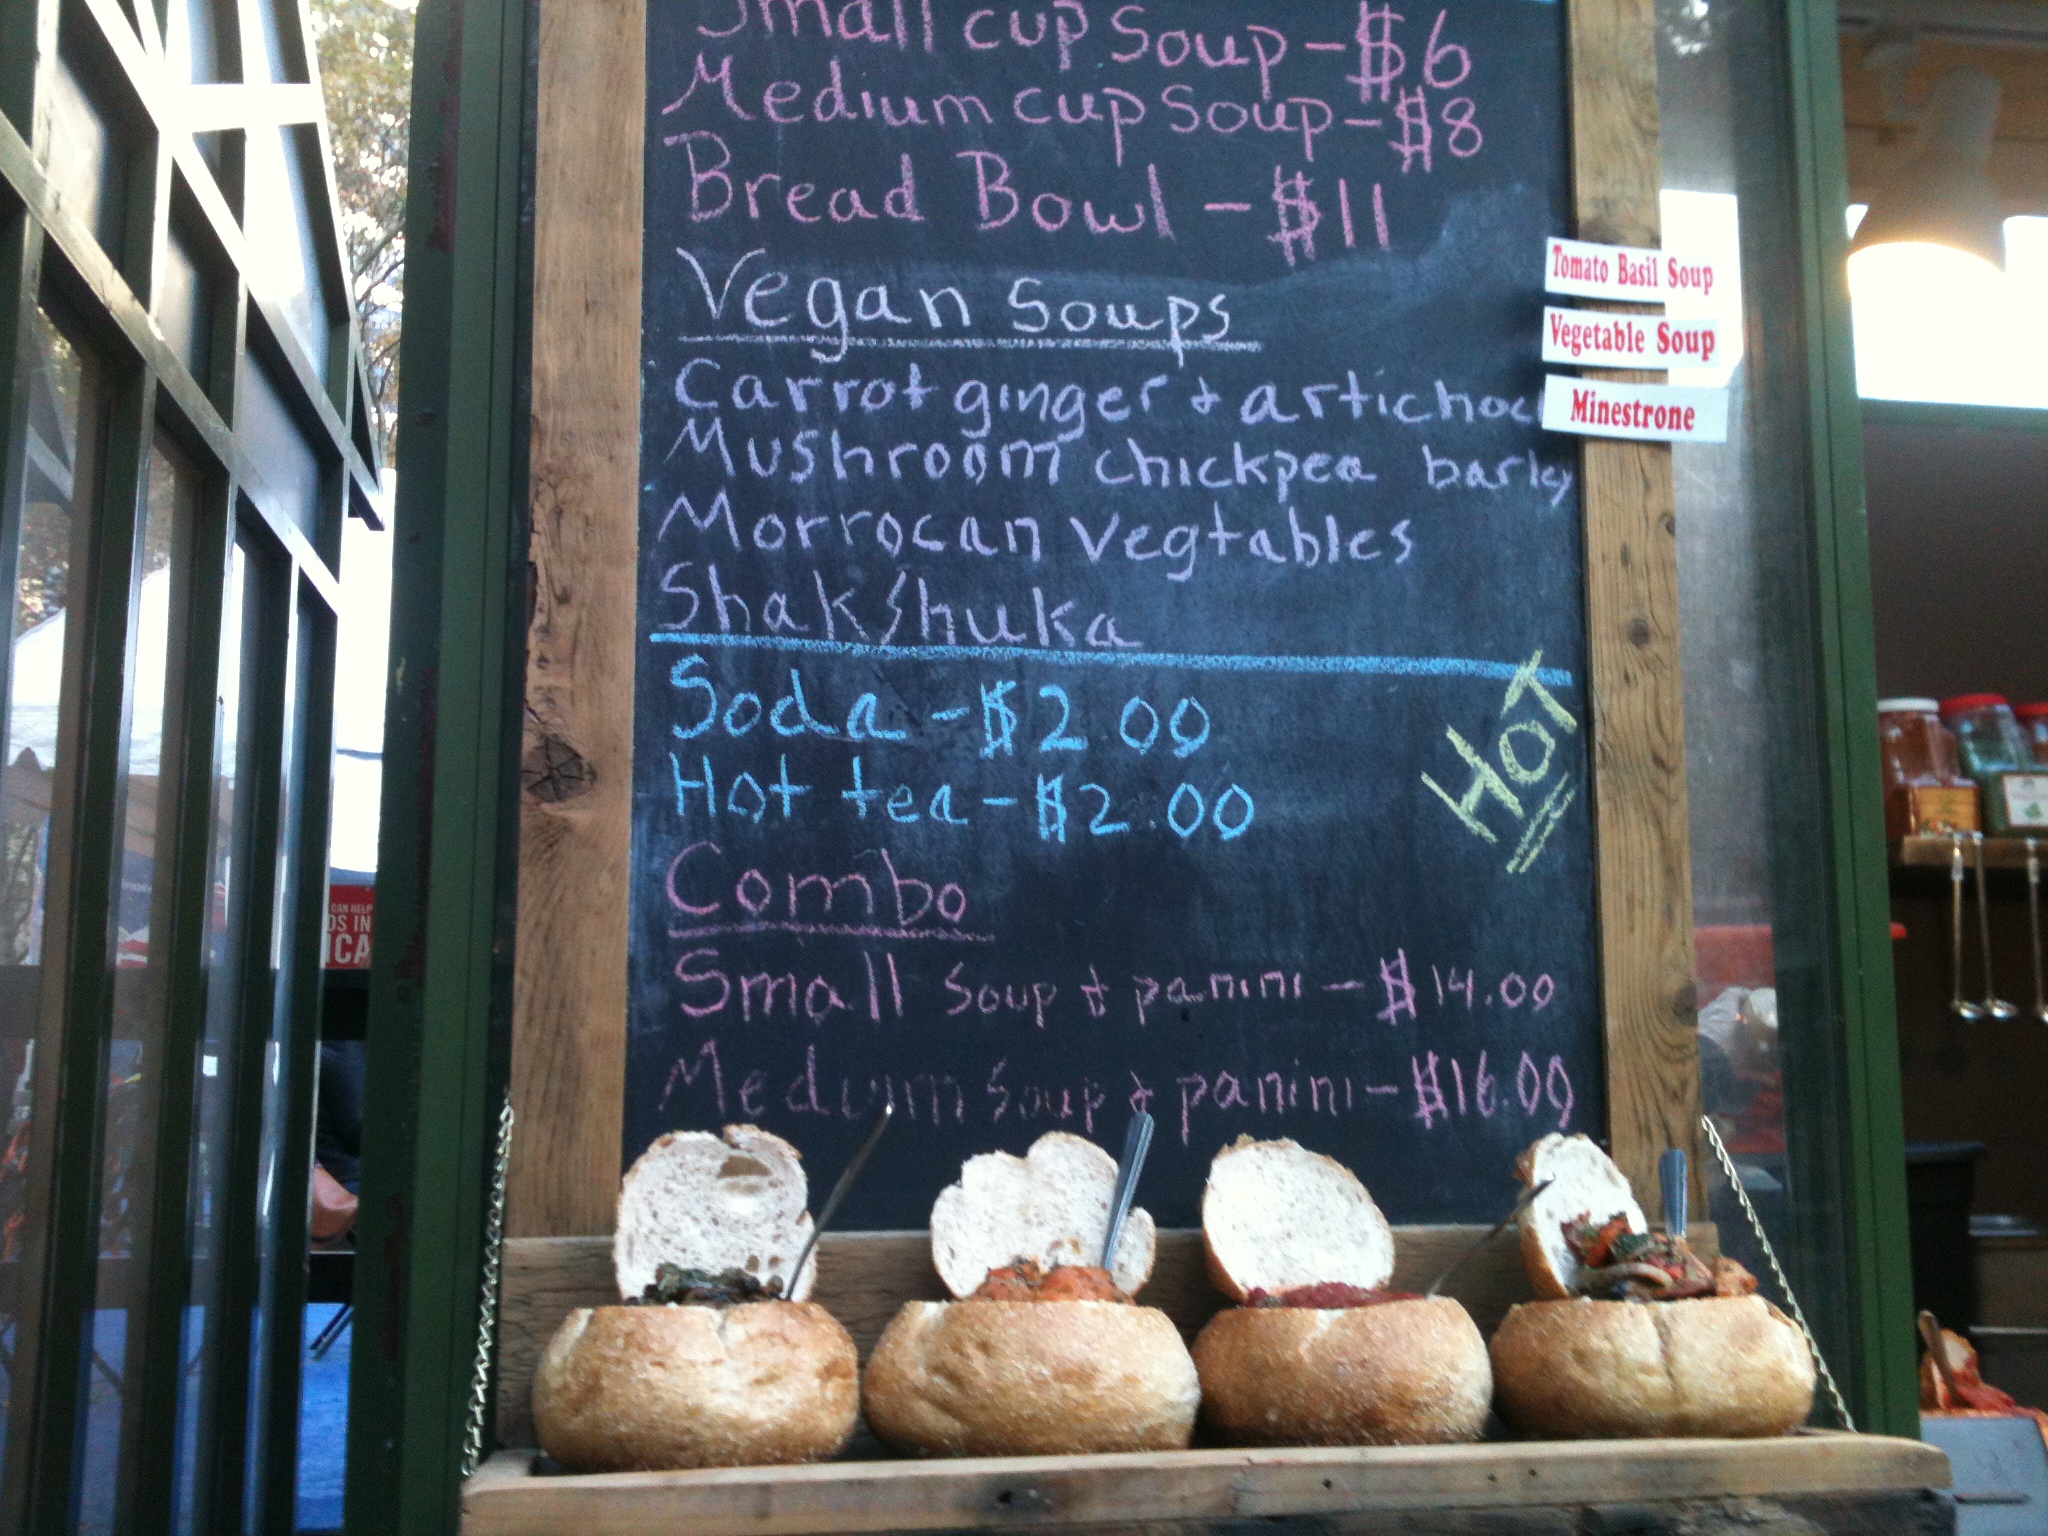 Small cup Soup - $6
Medium cup Soup - $8
Bread Bowl - $11
Vegan Soups
Carrot ginger + artichoc
Mushroom chickpea barley
Morrocan Vegtables
Shakshuka
Soda - $2.00
Hot tea - $2.00
HOT
Combo
Small Soup + panini - $14.00
Medium Soup + panini - $16.00
Tomato Basil Soup
Vegetable Soup
Minestrone
CAN HELP
DS IN
ICA